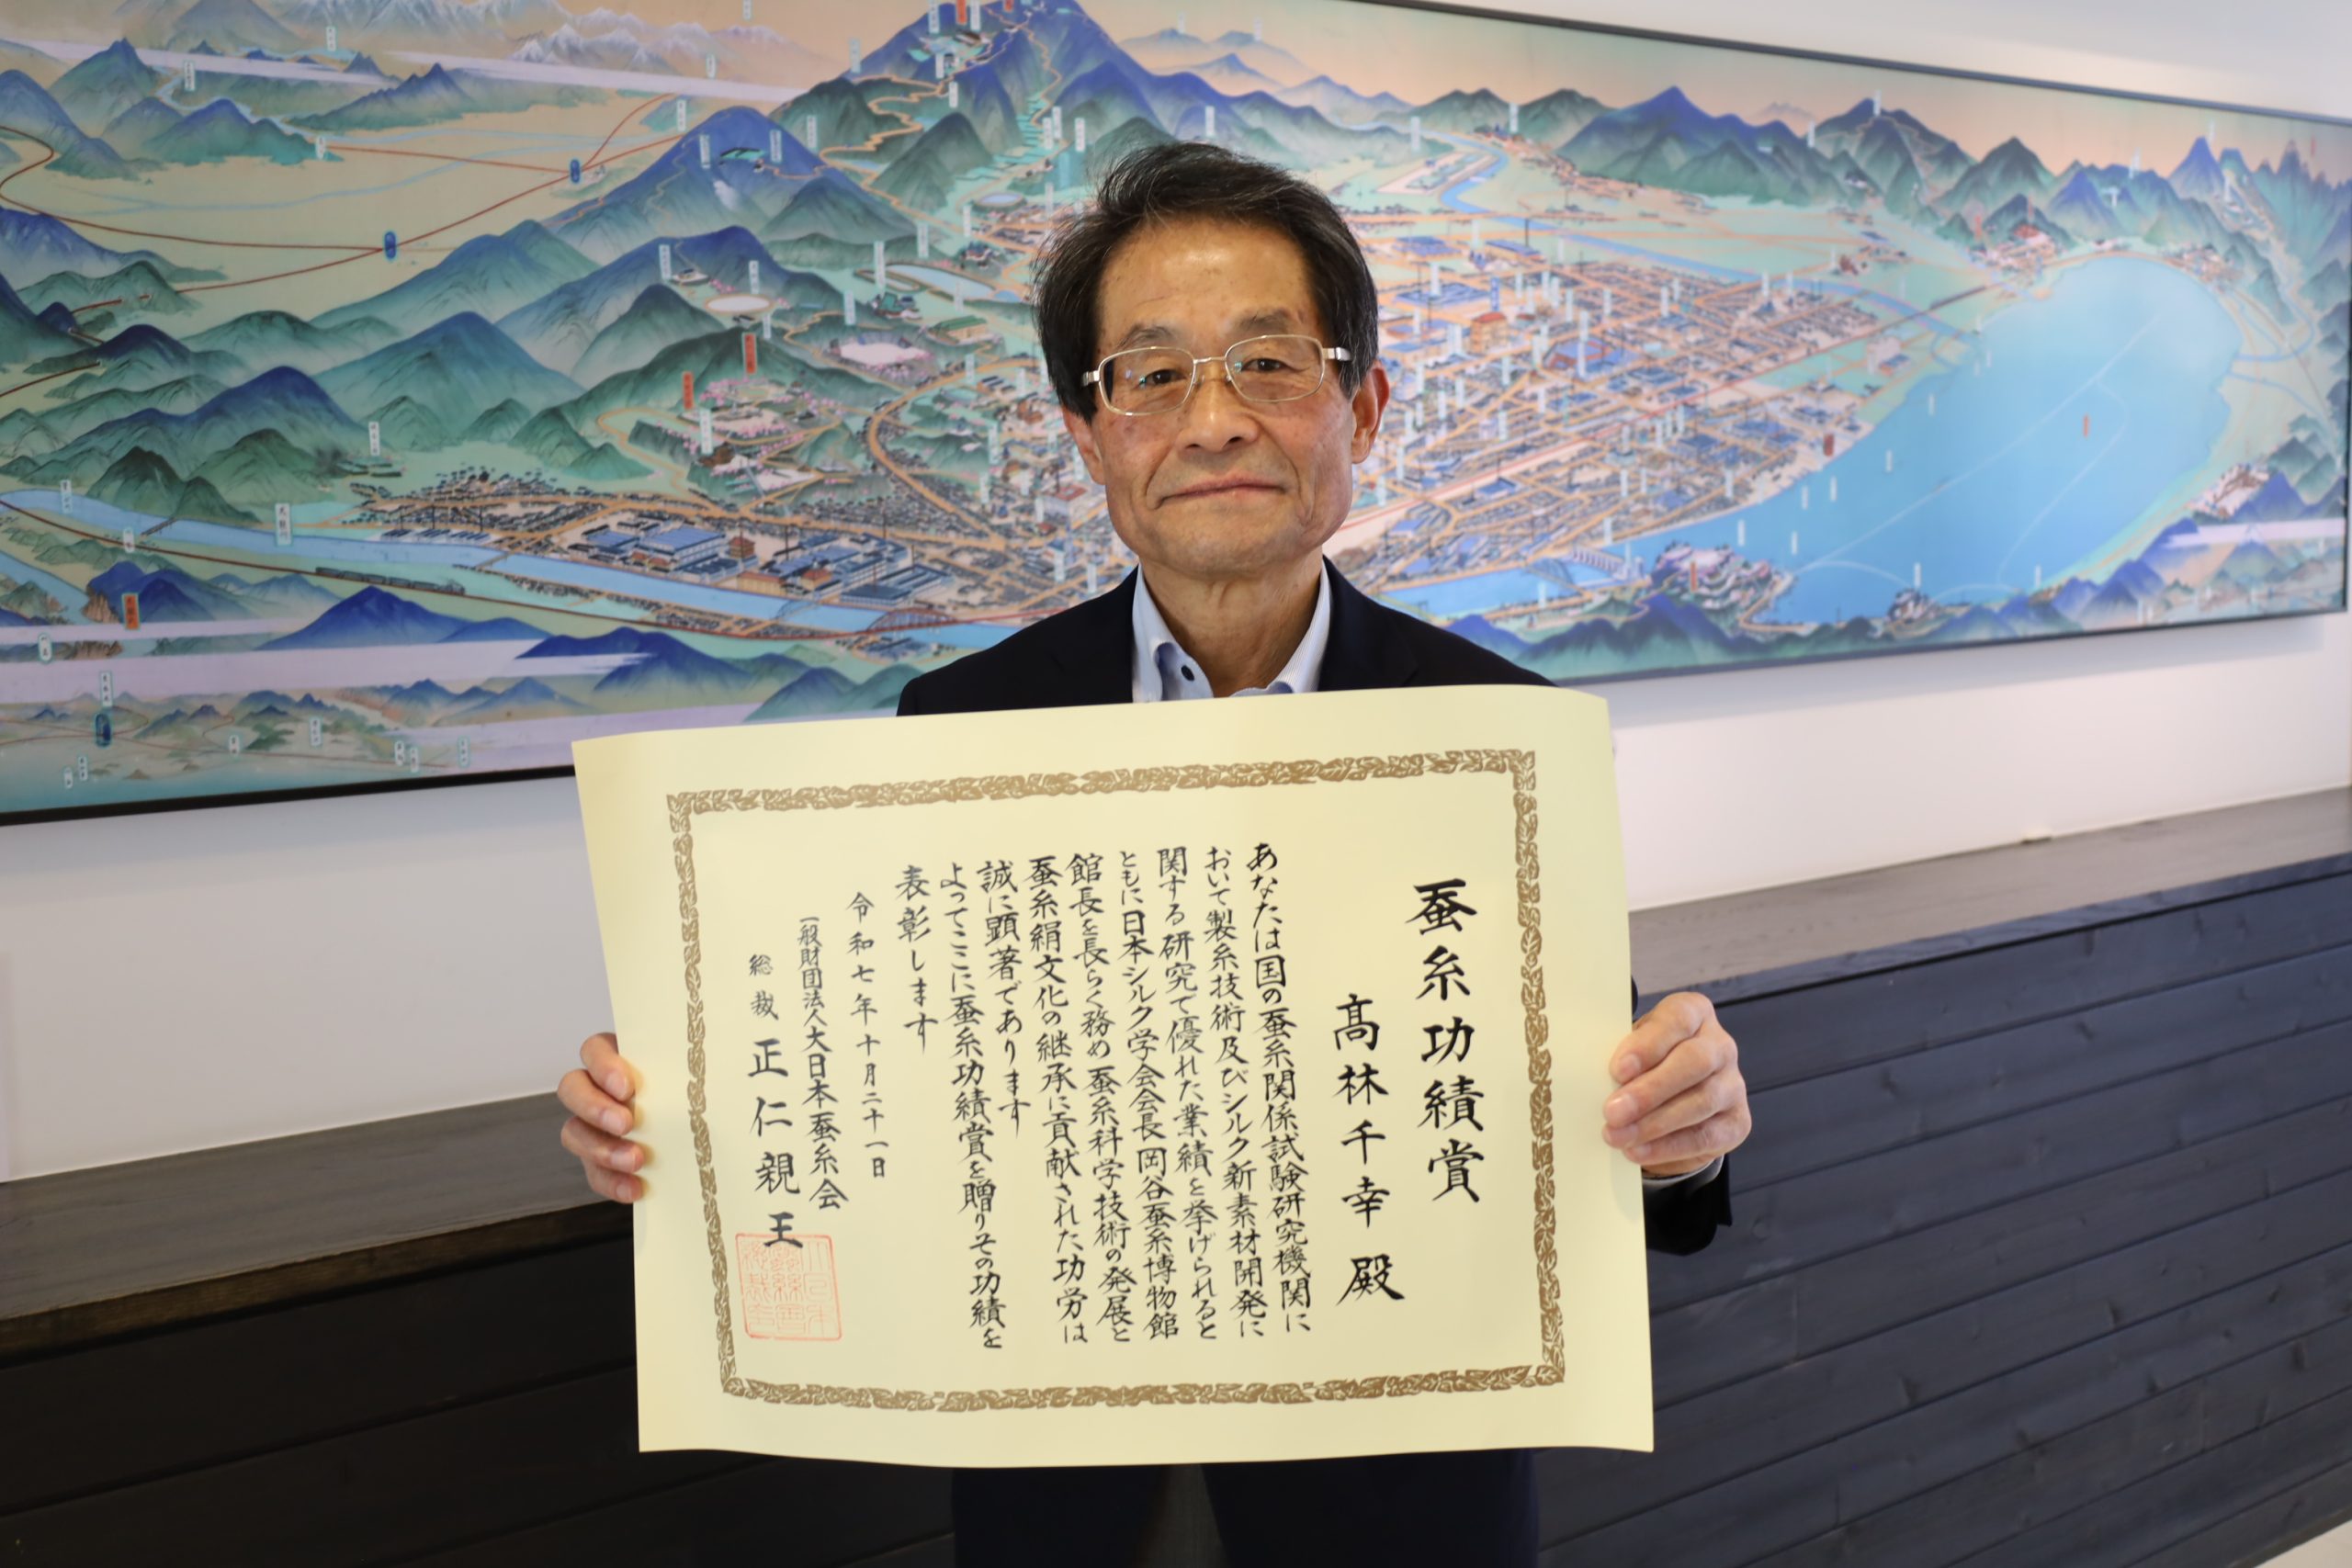 蚕糸功績賞
髙林千幸殿
あなたは国の蚕糸関係試験研究機関に
おいて製糸技術及びシルク新素材開発に
関する研究で優れた業績を挙げられると
ともに日本シルク学会会長岡谷蚕糸博物館
館長を長らく務め蚕糸科学技術の発展と
蚕糸絹文化の継承に貢献された功労は
誠に顕著であります
よってここに蚕糸功績賞を贈りその功績を
表彰します
令和七年十月二十一日
一般財団法人大日本蚕糸会
総裁 正仁親王